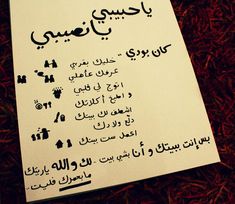 يا حبيبي
يا نصيبي
كان بودي -
خليك بقربي
عرفك عأهلي
اتوج لي قلبي
و اطبخ أكلاتك
اشطف لك بيتك
دلع ولادك
اعمل ست بيتك
بس إنت ببيتك و أنا بشي بيت - لك والله ياريتك
ما بعمرك فليت -